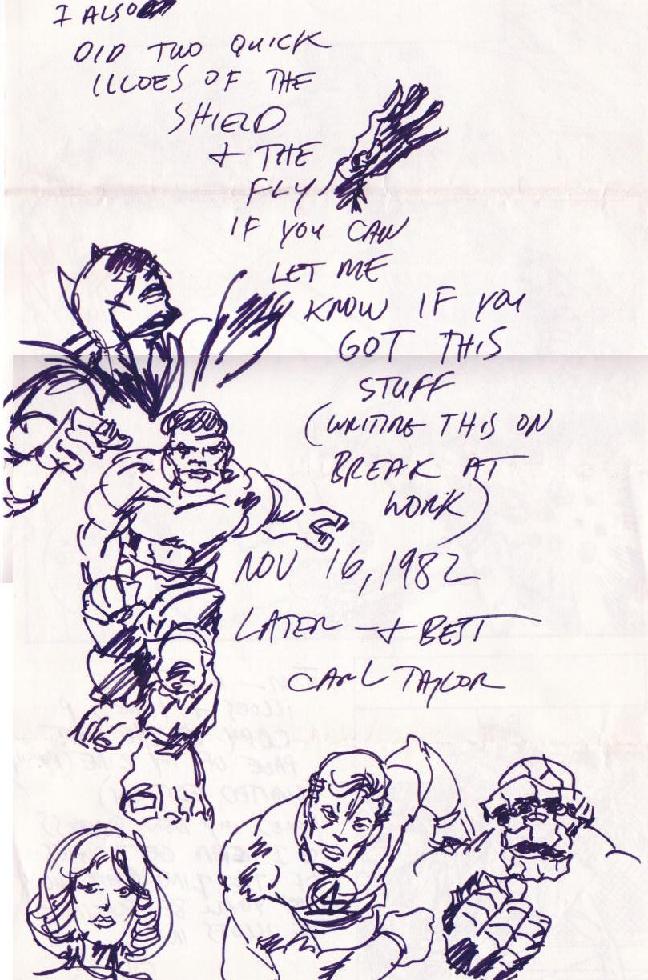 I ALSO
DID TWO QUICK
ILLOES OF THE
SHIELD
+ THE
FLY
IF YOU CAN
LET ME
KNOW IF YOU
GOT THIS
STUFF
(WRITING THIS ON
BREAK AT
WORK)
NOV 16, 1982
LATER + BEST
CARL TAYLOR
4